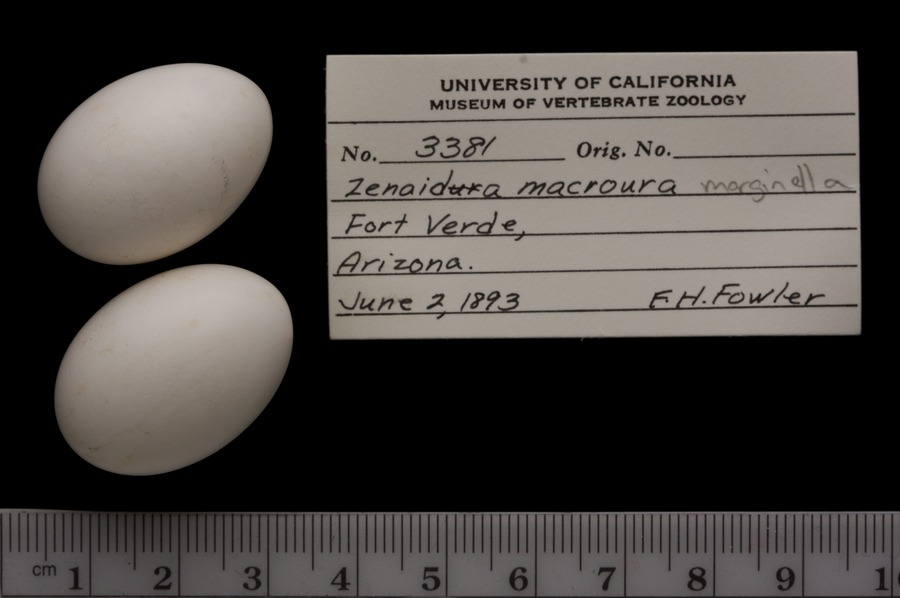 UNIVERSITY OF CALIFORNIA
MUSEUM OF VERTEBRATE ZOOLOGY
No. 3381 Orig. No.
Zenaidura macroura marginella
Fort Verde,
Arizona.
June 2, 1893 F.H. Fowler
cm 1 2 3 4 5 6 7 8 9 1